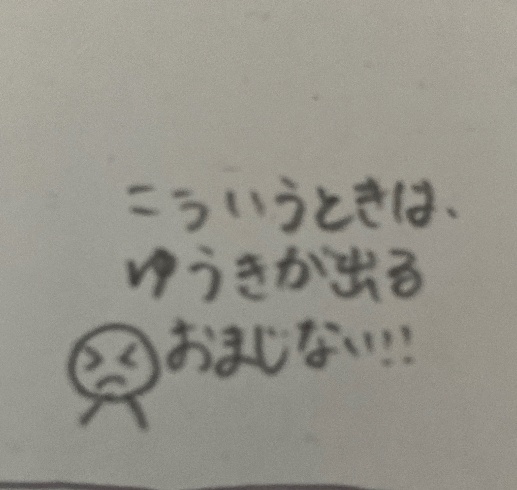 こういうときは、
ゆうきが出る
おまじない!!